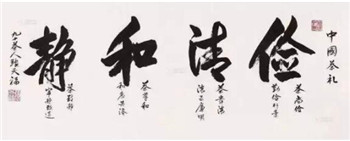 中國茶礼
俭
茶尚俭
勤俭朴素
清
茶贵清
清正廉明
和
茶导和
和衷共济
静
茶致静
宁静致远
茶人張天福